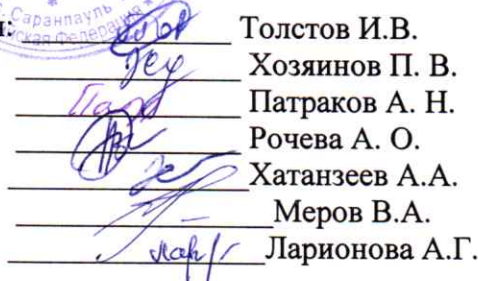 Саранпауль
Толстов И.В.
Хозяинов П. В.
Патраков А. Н.
Рочева А. О.
Хатанзеев А.А.
Меров В.А.
Ларионова А.Г.